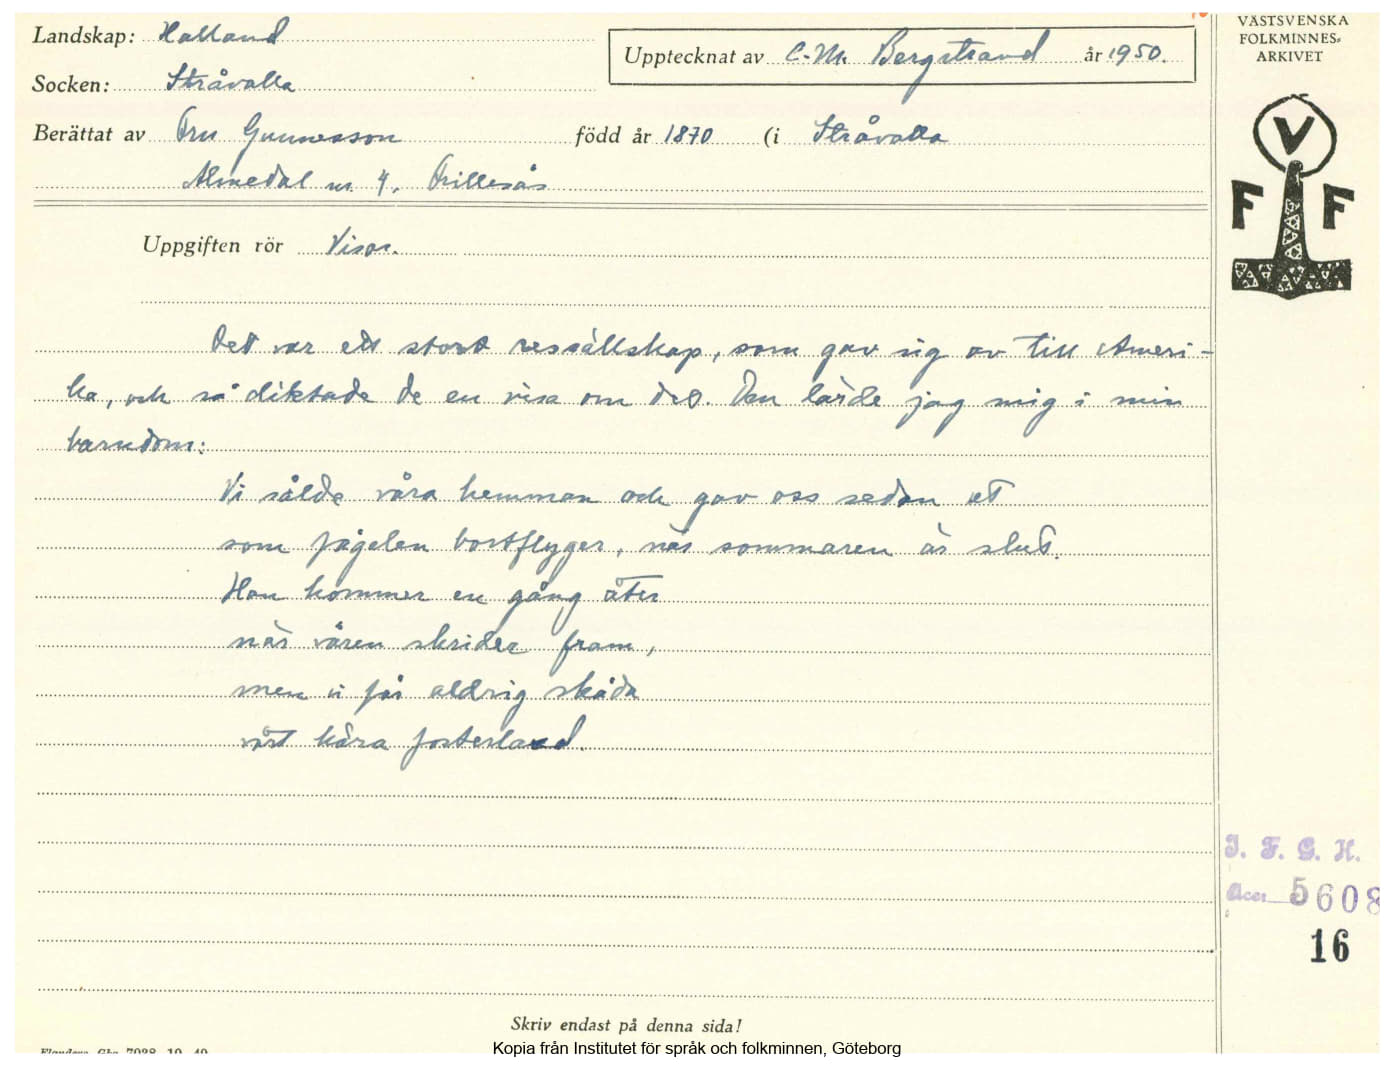 Landskap: Halland
Socken: Stråvalla
Upptecknat av C.M. Bergstrand år 1950.
VÄSTSVENSKA
FOLKMINNES-
ARKIVET
Berättat av Fru Gunnesson född år 1870 (i Stråvalla
Almedal nr. 4, Frillesås
V
F F
Uppgiften rör Visor.
Det var ett stort ressällskap, som gav sig av till Ameri-
ka, och så diktade de en visa om det. Den lärde jag mig i min
barndom:
Vi sålde våra hemman och gav oss sedan ut
som fågelen bortflyger, när sommaren är slut.
Han kommer en gång åter
när våren skrider fram,
men vi får aldrig skåda
vårt kära fosterland.
I. F. G. H.
Acc. 5608
16
Skriv endast på denna sida!
Kopia från Institutet för språk och folkminnen, Göteborg